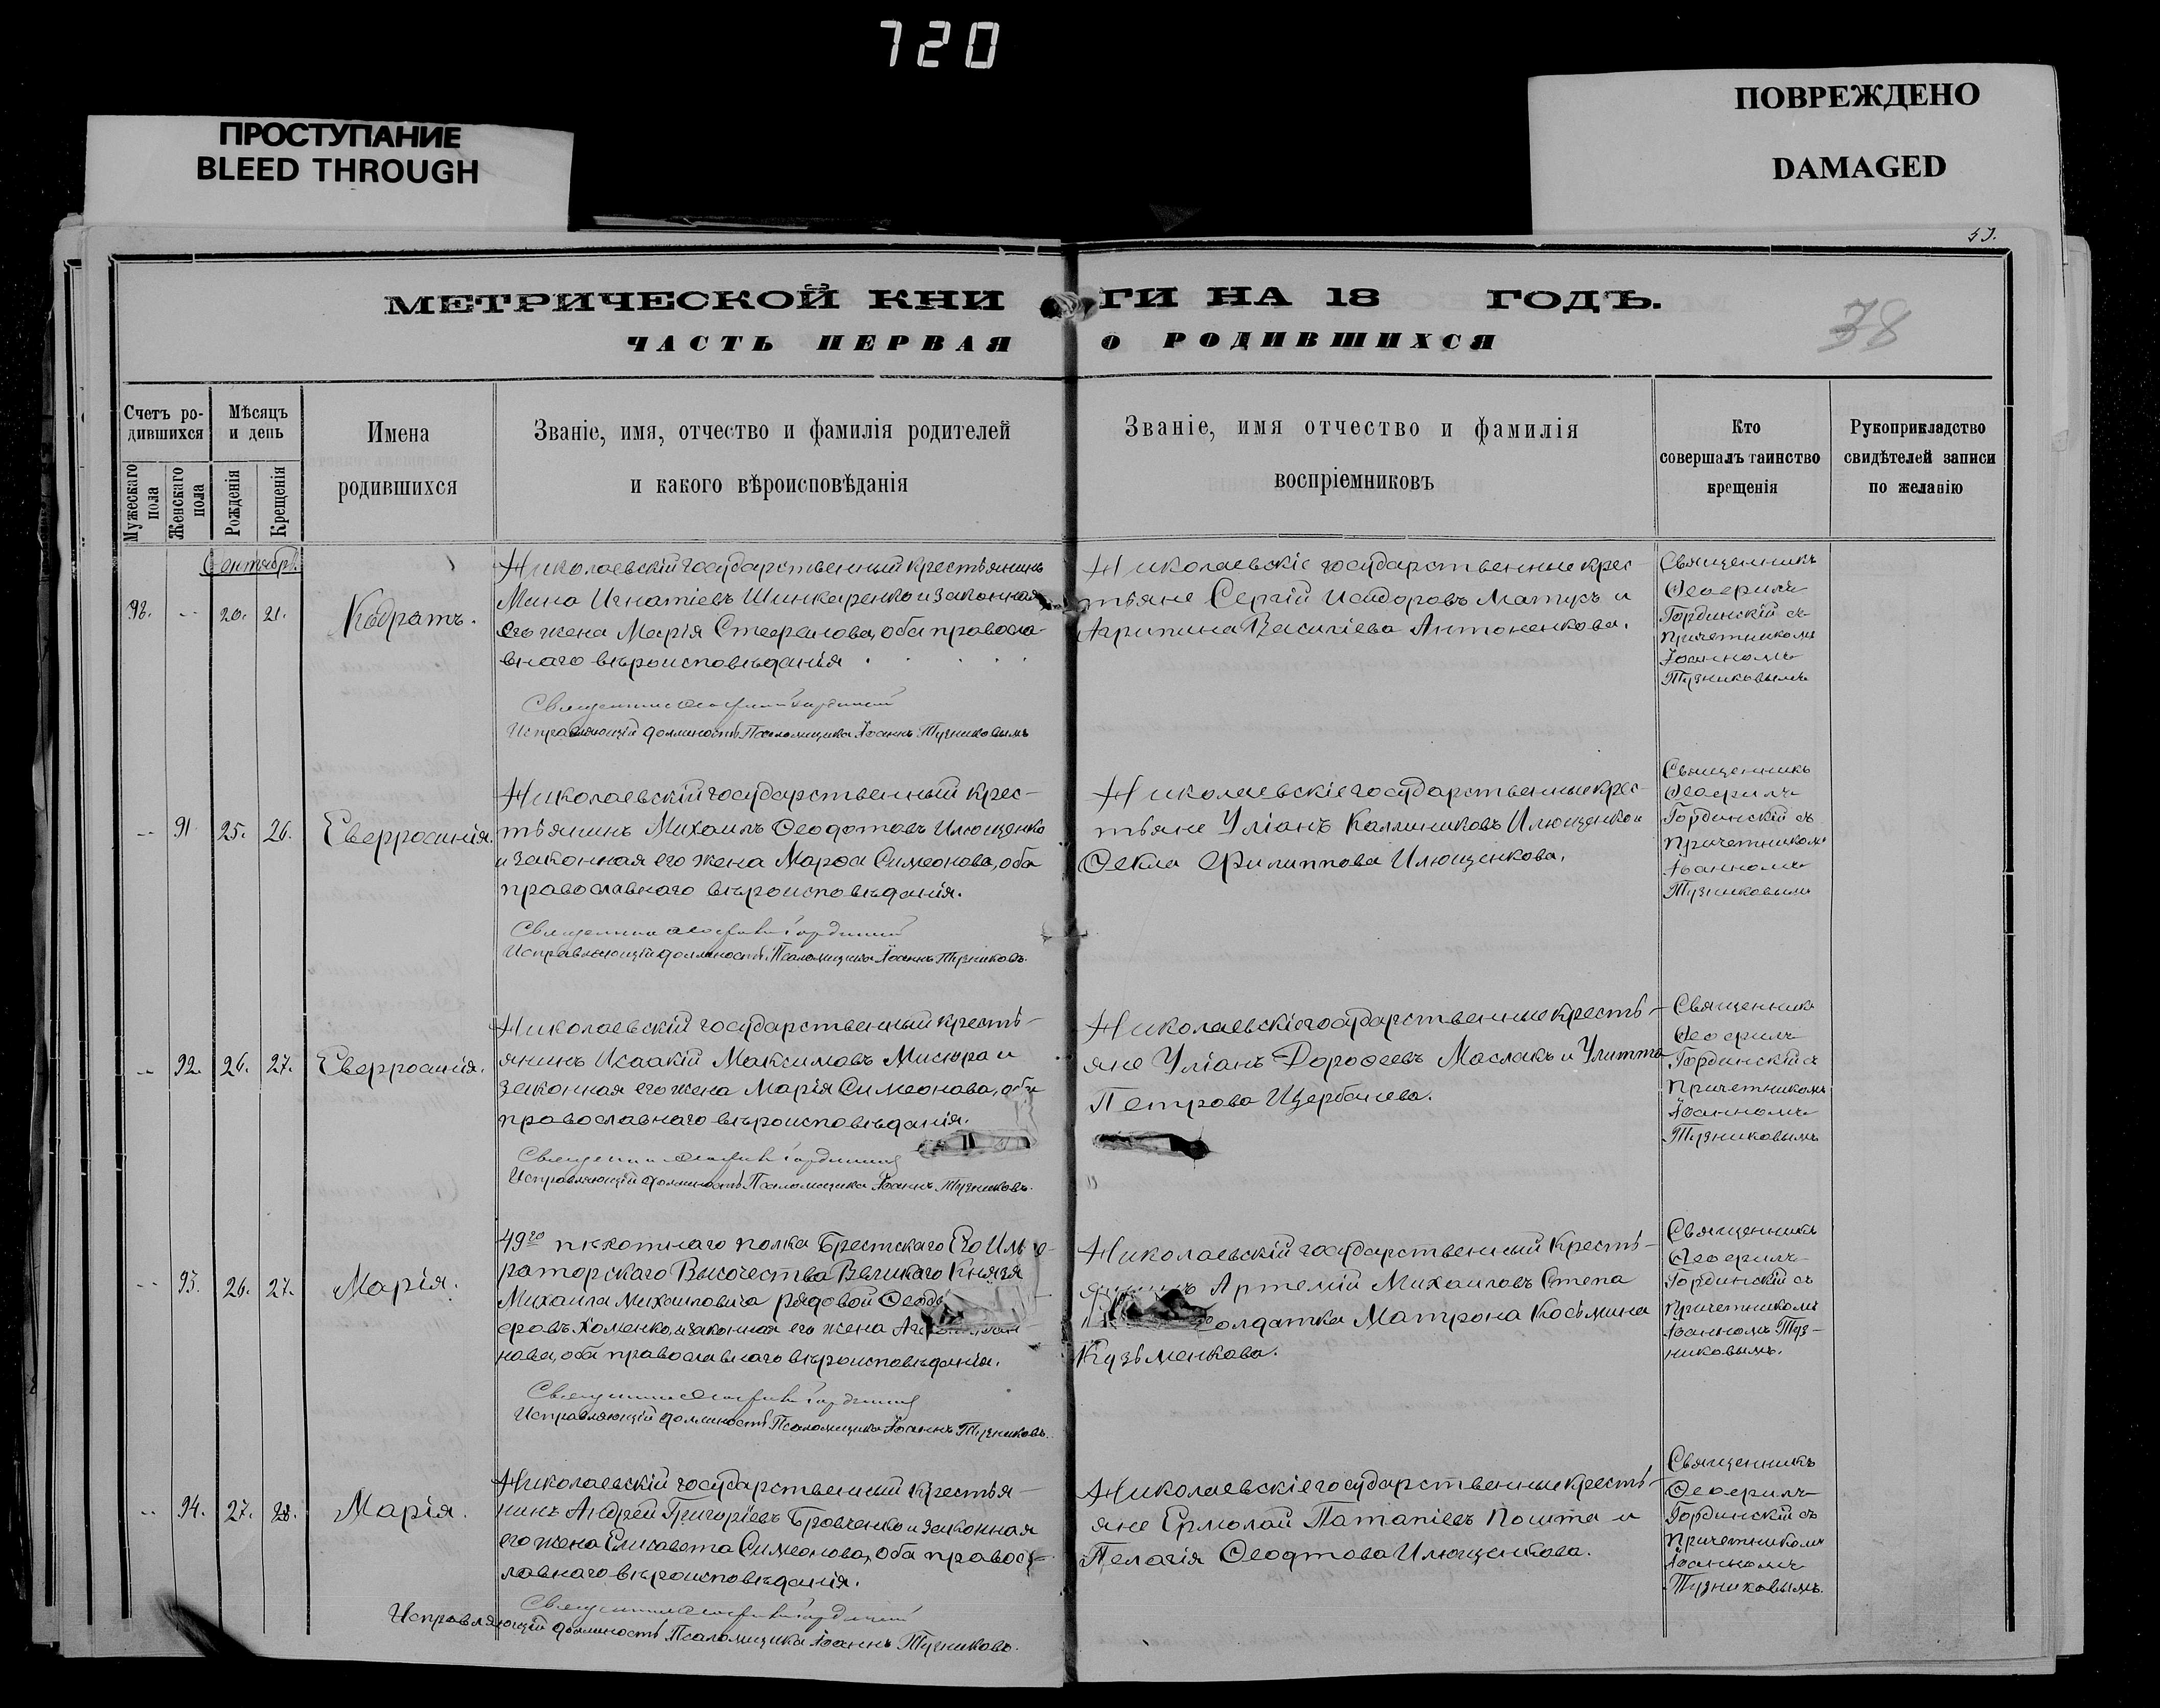 720
ПРОСТУПАНИЕ
BLEED THROUGH
ПОВРЕЖДЕНО
DAMAGED
53.
МЕТРИЧЕСКОЙ КНИГИ НА 18 ГОДЪ.
ЧАСТЬ ПЕРВАЯ О РОДИВШИХСЯ
38
Счетъ ро-
дившихся
Мужескаго пола
Женскаго пола
Мѣсяцъ
и день
Рожденія
Крещенія
Имена
родившихся
Званіе, имя, отчество и фамилія родителей
и какого вѣроисповѣданія
Званіе, имя отчество и фамилія
воспріемниковъ
Кто
совершалъ таинство
крещенія
Рукоприкладство
свидѣтелей записи
по желанію
Сентябрь
98. -- 20. 21.
Кодратъ.
Николаевскій государственный крестьянинъ
Мина Игнатіевъ Шинкаренко и законная
его жена Марія Стефанова, оба правосла-
внаго вѣроисповѣданія
Священникъ Ѳеофилъ Гординскій
Исправляющій должность Псаломщика Іоаннъ Тузниковымъ
Николаевскіе государственные крес-
тьяне Сергій Исидоровъ Матусъ и
Агрипина Василіева Антоненкова.
Священникъ
Ѳеофилъ
Гординскій съ
Причетникомъ
Іоанномъ
Тузниковымъ
-- 91. 25. 26.
Евфросинія.
Николаевскій государственный крес-
тьянинъ Михаилъ Ѳеодотовъ Илющенко
и законная его жена Марѳа Симеонова, оба
православнаго вѣроисповѣданія.
Священникъ Ѳеофилъ Гординскій
Исправляющій должность Псаломщика Іоаннъ Тузниковъ.
Николаевскіе государственные крес-
тьяне Уліанъ Каллиниковъ Илющенко и
Ѳекла Филиппова Илющенкова.
Священникъ
Ѳеофилъ
Гординскій съ
Причетникомъ
Іоанномъ
Тузниковымъ
-- 92. 26. 27.
Евфросинія.
Николаевскій государственный кресть-
янинъ Исаакій Максимовъ Мисюра и
законная его жена Марія Симеонова, оба
православнаго вѣроисповѣданія.
Священникъ Ѳеофилъ Гординскій
Исправляющій должность Псаломщика Іоаннъ Тузниковъ.
Николаевскіе государственные кресть-
яне Уліанъ Дороѳеевъ Маслакъ и Улитта
Петрова Щербачева.
Священникъ
Ѳеофилъ
Гординскій съ
Причетникомъ
Іоанномъ
Тузниковымъ
-- 93. 26. 27.
Марія.
49го пѣхотнаго полка Брестскаго Его Импе-
раторскаго Высочества Великаго Князя
Михаила Михаиловича рядовой
Хоменко, и законная его жена
нова, оба православнаго вѣроисповѣданія.
Священникъ Ѳеофилъ Гординскій
Исправляющій должность Псаломщика Іоаннъ Тузниковъ.
Николаевскій государственный кресть-
Артемій Михаиловъ Степа
солдатка Матрона Косьмина
Кузьменкова.
Священникъ
Ѳеофилъ
Гординскій съ
Причетникомъ
Іоанномъ Туз-
никовымъ.
-- 94. 27. 28.
Марія.
Николаевскій государственный крестья-
нинъ Андрей Григоріевъ Бровченко и законная
его жена Елисавета Симеонова, оба правос-
лавнаго вѣроисповѣданія.
Священникъ Ѳеофилъ Гординскій
Исправляющій должность Псаломщика Іоаннъ Тузниковъ.
Николаевскіе государственные кресть-
яне Ермолай Патапіевъ Пошта и
Пелагія Ѳеодтова Илющенкова.
Священникъ
Ѳеофилъ
Гординскій съ
Причетникомъ
Іоанномъ
Тузниковымъ.